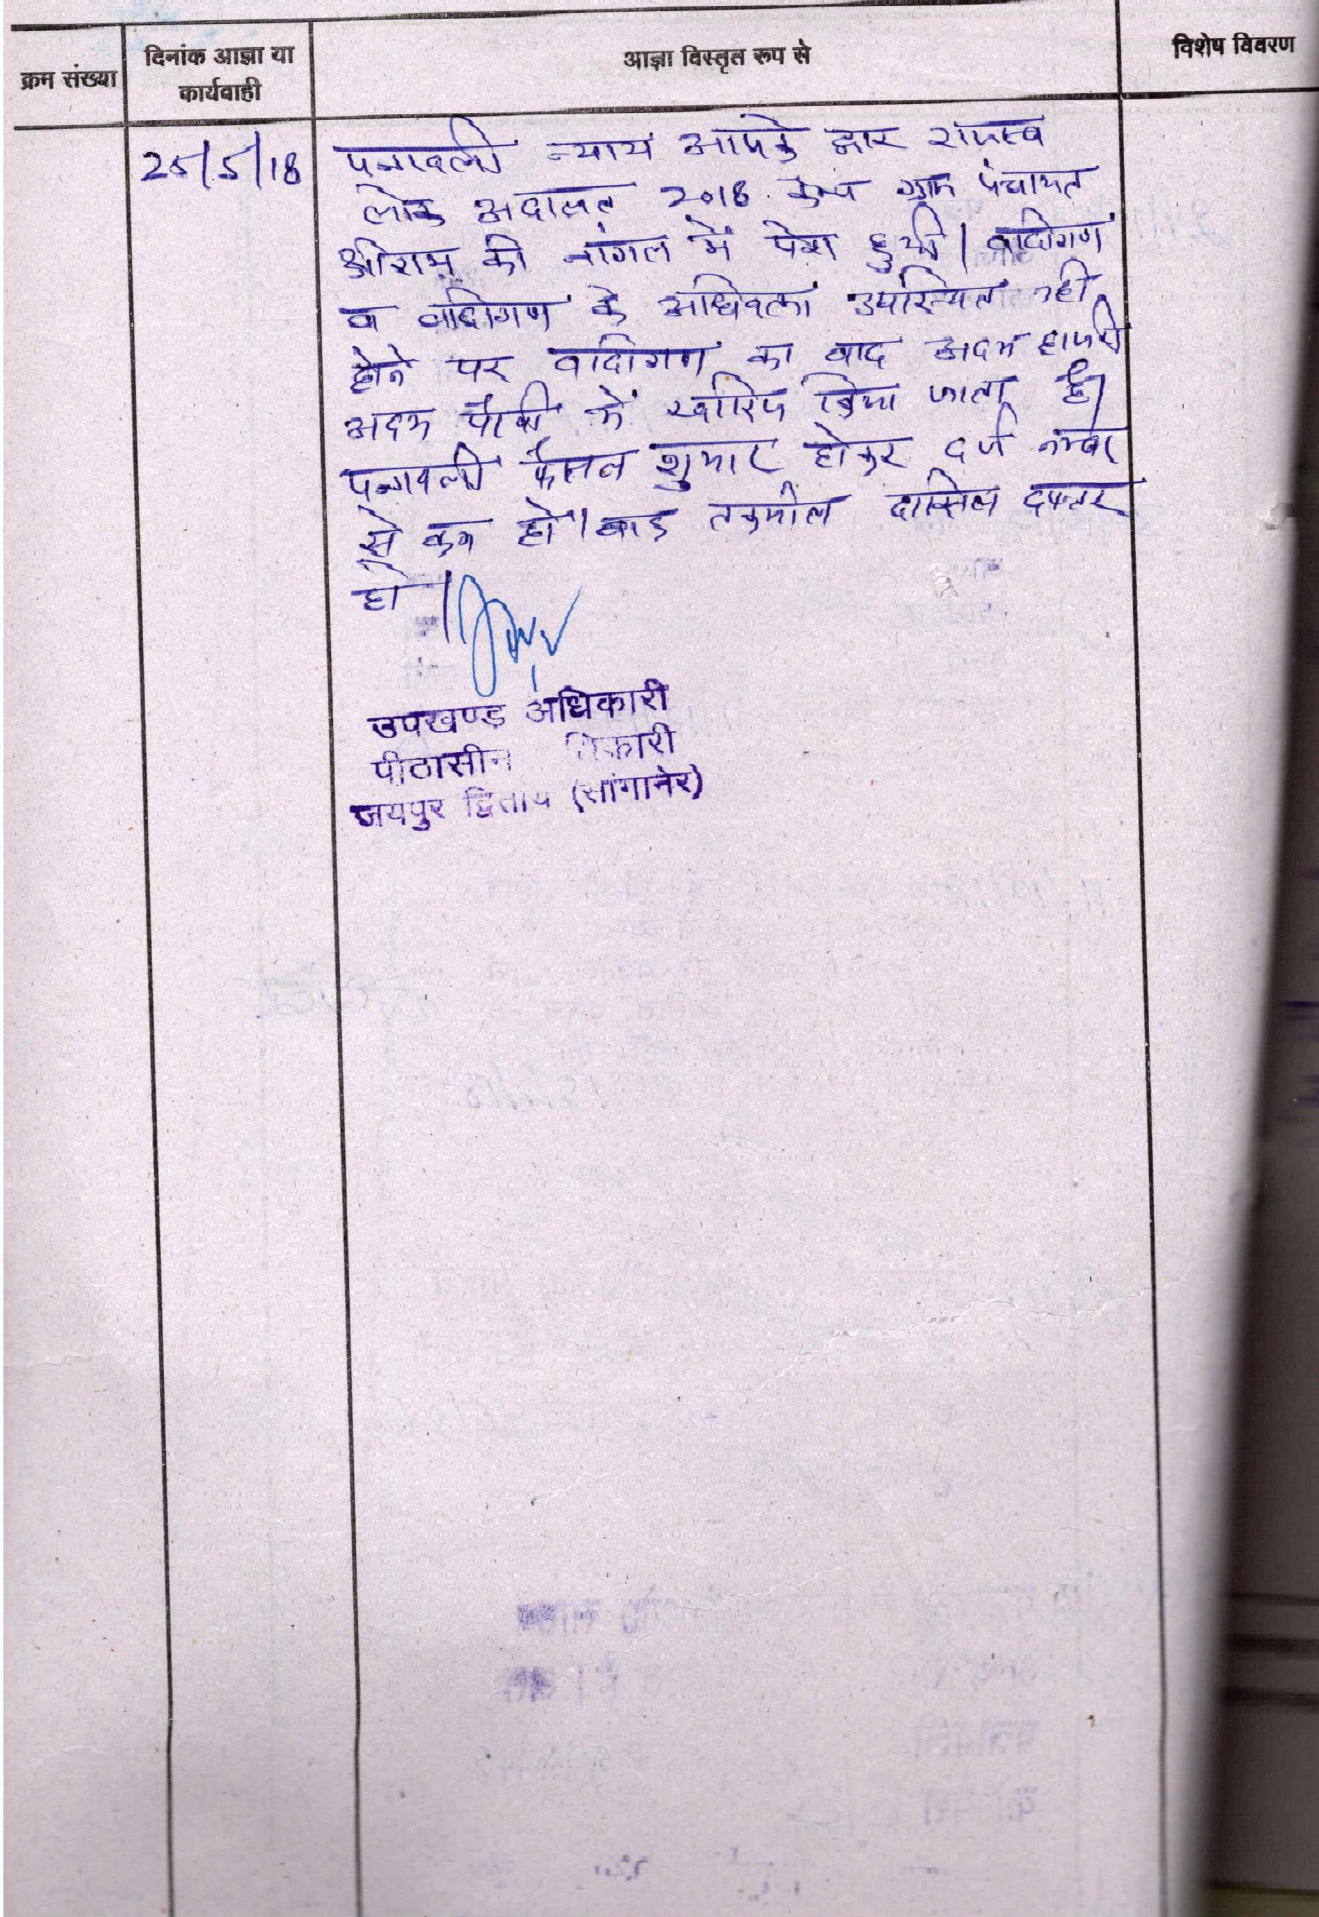 क्रम संख्या
दिनांक आज्ञा या
कार्यवाही
आज्ञा विस्तृत रूप से
विशेष विवरण
25/5/18
पत्रावली न्याय आपके द्वार राजस्व
लोक अदालत 2018 केम्प ग्राम पंचायत
श्रीराम की नांगल में पेश हुयी। वादीगण
व वादीगण के अधिवक्ता उपस्थित नही
होने पर वादीगण का वाद अदम हाजरी
अदम पैरवी में खारिज किया जाता है।
पत्रावली फैसल शुमार होकर दर्ज नम्बर
से कम हो। बाद तकमील दाखिल दफ्तर
हो।
उपखण्ड अधिकारी
पीठासीन
जयपुर द्वितीय (सांगानेर)